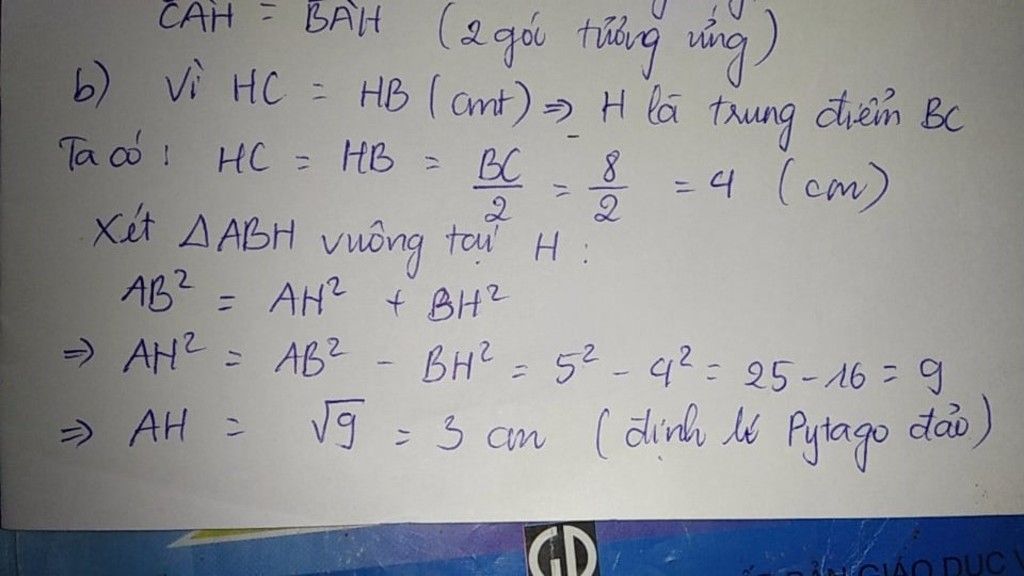 CAH = BAH (2 gói tưởng ửng)
b) Vì HC = HB (cmt) => H là trung điểm BC
Ta có: HC = HB = BC/2 = 8/2 = 4 (cm)
Xét ΔABH vuông tại H:
AB² = AH² + BH²
=> AH² = AB² - BH² = 5² - 4² = 25 - 16 = 9
=> AH = √9 = 3 cm (định lí Pytago đảo)
GD
GIÁO DỤC V